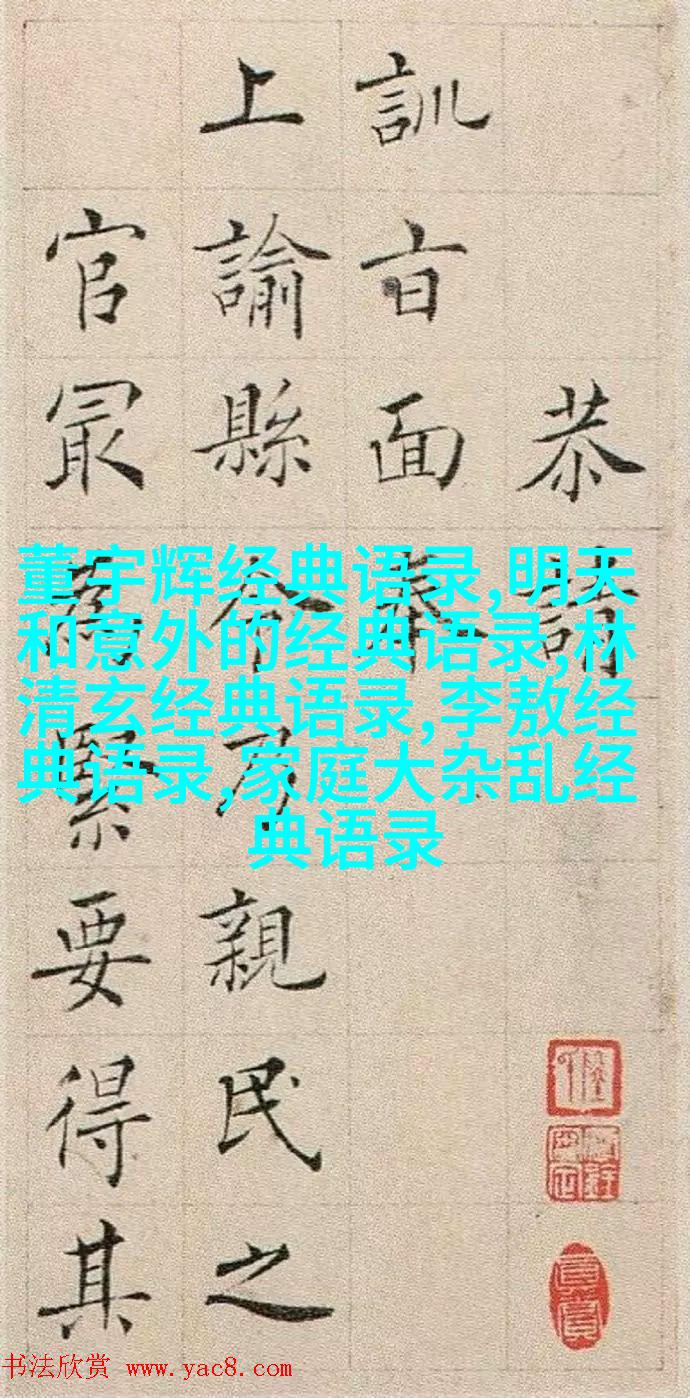 恭請
訓旨面奉
上諭縣令乃親民之
官最為緊要得其
董宇辉经典语录,明天
和意外的经典语录,林
清玄经典语录,李敖经
典语录,家庭大杂乱经
典语录
书法欣赏 www.yac8.com